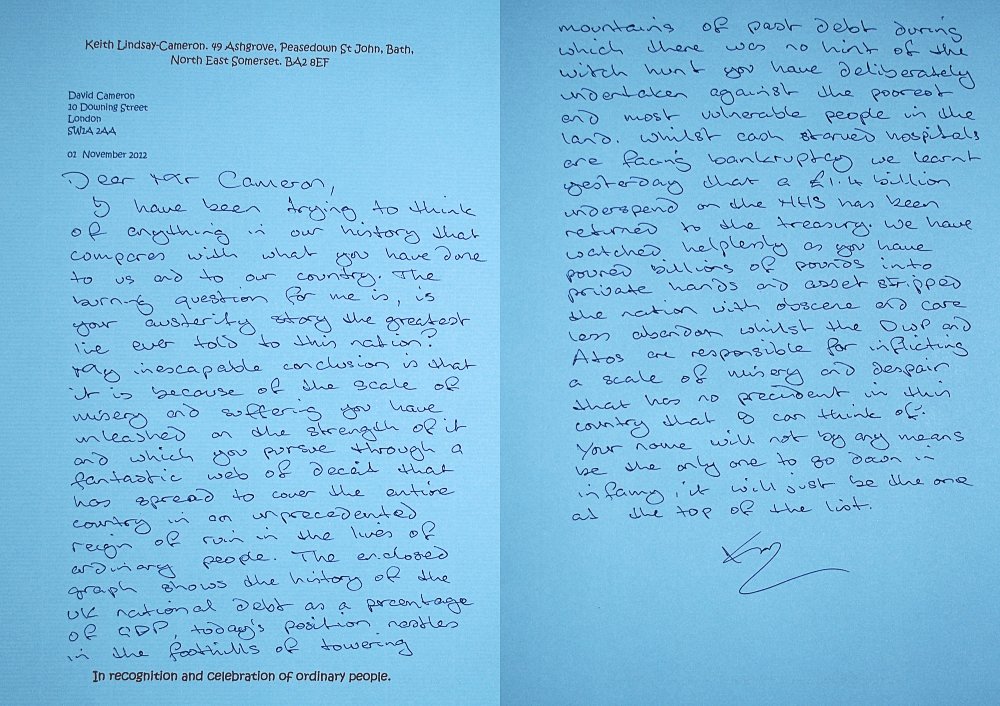 Keith Lindsay-Cameron. 49 Ashgrove, Peasedown St John, Bath,
North East Somerset. BA2 8EF
David Cameron
10 Downing Street
London
SW1A 2AA
01 November 2012
Dear Mr Cameron,
I have been trying to think
of anything in our history that
compares with what you have done
to us and to our country. The
burning question for me is, is
your austerity story the greatest
lie ever told to this nation?
My inescapable conclusion is that
it is because of the scale of
misery and suffering you have
unleashed on the strength of it
and which you pursue through a
fantastic web of decait that
has spread to cover the entire
country in an unprecedented
reign of ruin in the lives of
ordinary people. The enclosed
graph shows the history of the
UK national debt as a percentage
of GDP, today's position nestles
in the foothills of towering
In recognition and celebration of ordinary people.
mountains of past debt during
which there was no hint of the
witch hunt you have deliberately
undertaken against the poorest
and most vulnerable people in the
land. Whilst cash starved hospitals
are facing bankruptcy we learnt
yesterday that a £1.4 billion
underspend on the NHS has been
returned to the treasury. We have
watched helplessly as you have
poured billions of pounds into
private hands and asset stripped
the nation with obscene and care
less abandon whilst the DWP and
Atos are responsible for inflicting
a scale of misery and despair
that has no precident in this
country that I can think of.
Your name will not by any means
be the only one to go down in
infamy, it will just be the one
at the top of the list.